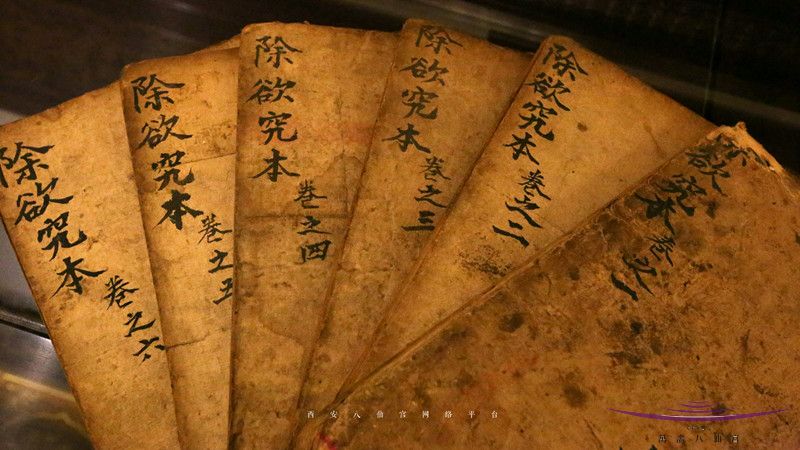 除欲究本
卷之六
除欲究本
卷之五
除欲究本
卷之四
除欲究本
卷之三
除欲究本
卷之二
除欲究本
卷之一
西安八仙宫网络平台